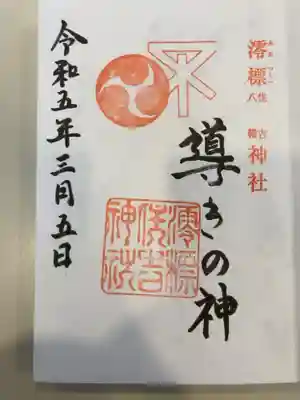 澪標
住吉
八幡
神社
導きの神
澪標
住吉
神社
令和五年三月五日